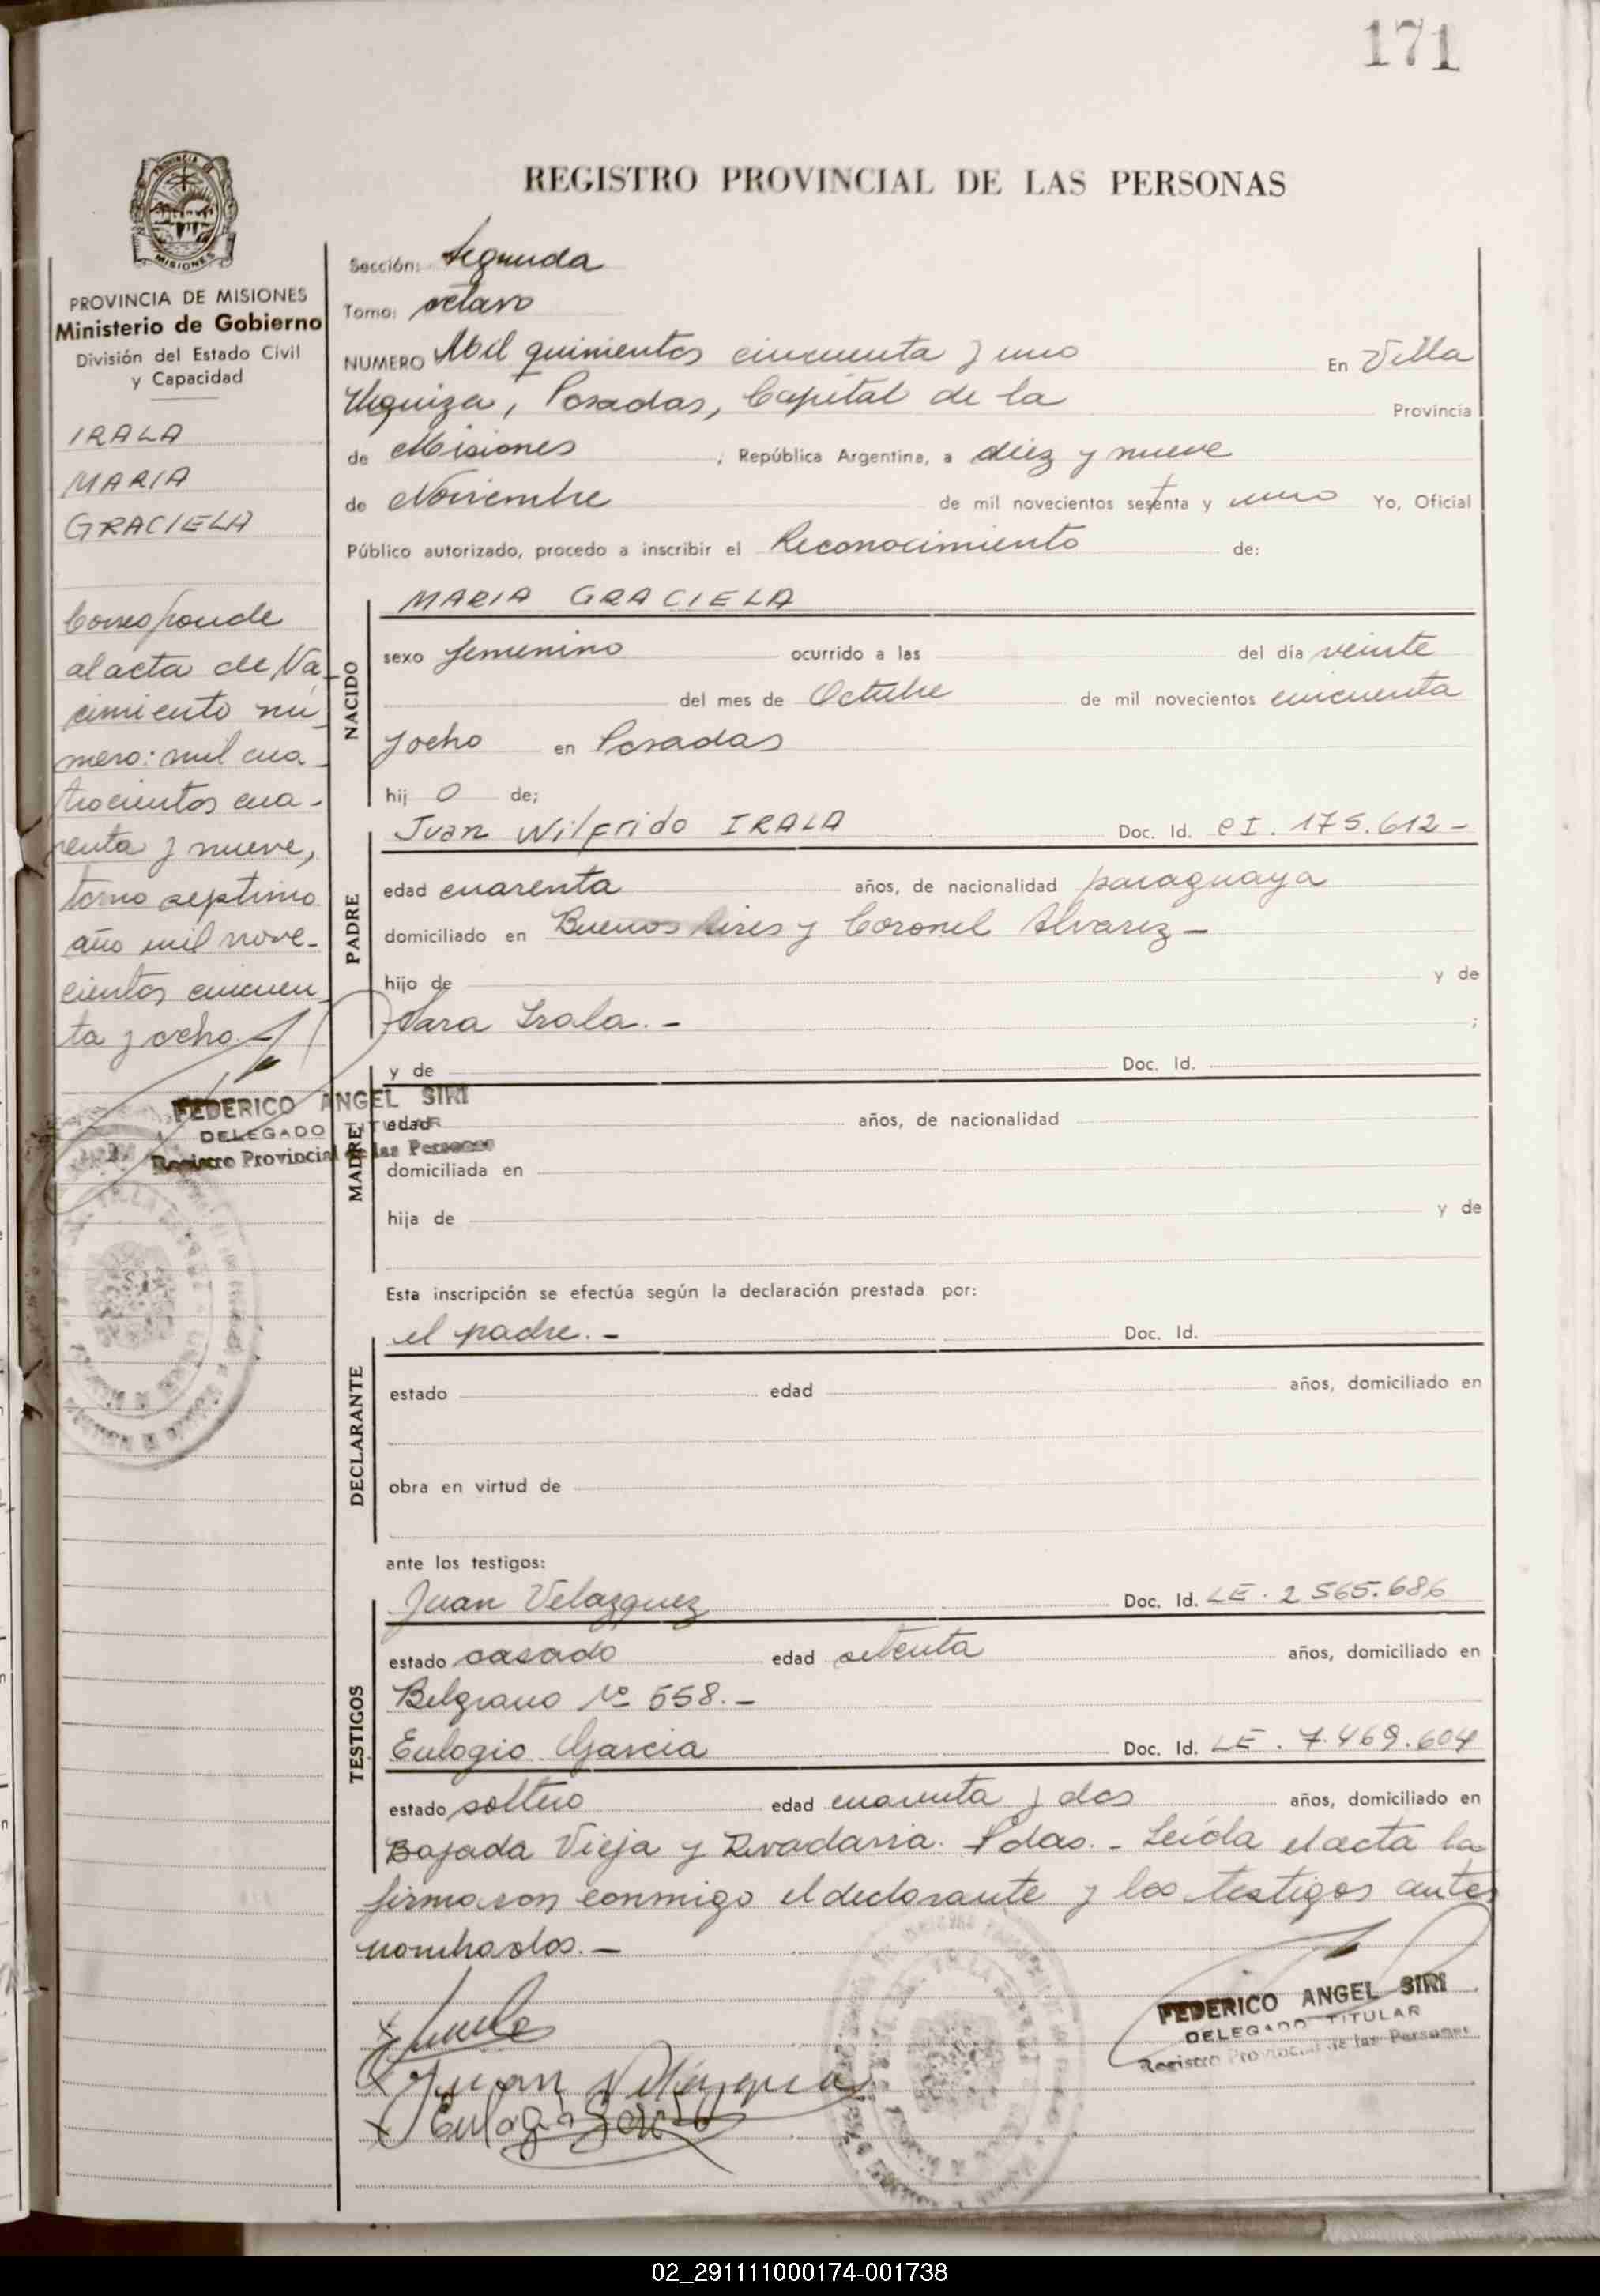 171
REGISTRO PROVINCIAL DE LAS PERSONAS
MISIONES
PROVINCIA DE MISIONES
Ministerio de Gobierno
División del Estado Civil
y Capacidad
IRALA
MARIA
GRACIELA
Corresponde
al acta de Na-
cimiento nú-
mero: mil cua-
trocientos cua-
renta y nueve,
tomo septimo
año mil nove-
cientos cincuen-
ta y ocho.-
FEDERICO ANGEL SIRI
DELEGADO TITULAR
Registro Provincial de las Personas
Sección: Segunda
Tomo: octavo
NUMERO Mil quinientos cincuenta y uno En Villa
Urquiza, Posadas, Capital de la Provincia
de Misiones, República Argentina, a diez y nueve
de Noviembre de mil novecientos setenta y uno Yo, Oficial
Público autorizado, procedo a inscribir el Reconocimiento de:
NACIDO
MARIA GRACIELA
sexo femenino ocurrido a las del día veinte
del mes de Octubre de mil novecientos cincuenta
y ocho en Posadas
hij o de;
PADRE
Juan Wilfrido IRALA Doc. Id. CI. 175.612-
edad cuarenta años, de nacionalidad paraguaya
domiciliado en Buenos Aires y Coronel Alvarez-
hijo de y de
Sara Irala.- ;
MADRE
y de Doc. Id.
edad años, de nacionalidad
domiciliada en
hija de y de
Esta inscripción se efectúa según la declaración prestada por:
DECLARANTE
el padre.- Doc. Id.
estado edad años, domiciliado en
obra en virtud de
ante los testigos:
TESTIGOS
Juan Velazquez Doc. Id. LE. 2 565.686
estado casado edad setenta años, domiciliado en
Belgrano Nº 558.-
Eulogio Garcia Doc. Id. LE. 7.469.604
estado soltero edad cuarenta y dos años, domiciliado en
Bajada Vieja y Rivadavia. Pdas.- Leída el acta la
firmaron conmigo el declarante y los testigos antes
nombrados.-
Juan Velázquez
Eulogio Garcia
FEDERICO ANGEL SIRI
DELEGADO TITULAR
Registro Provincial de las Personas
02_291111000174-001738